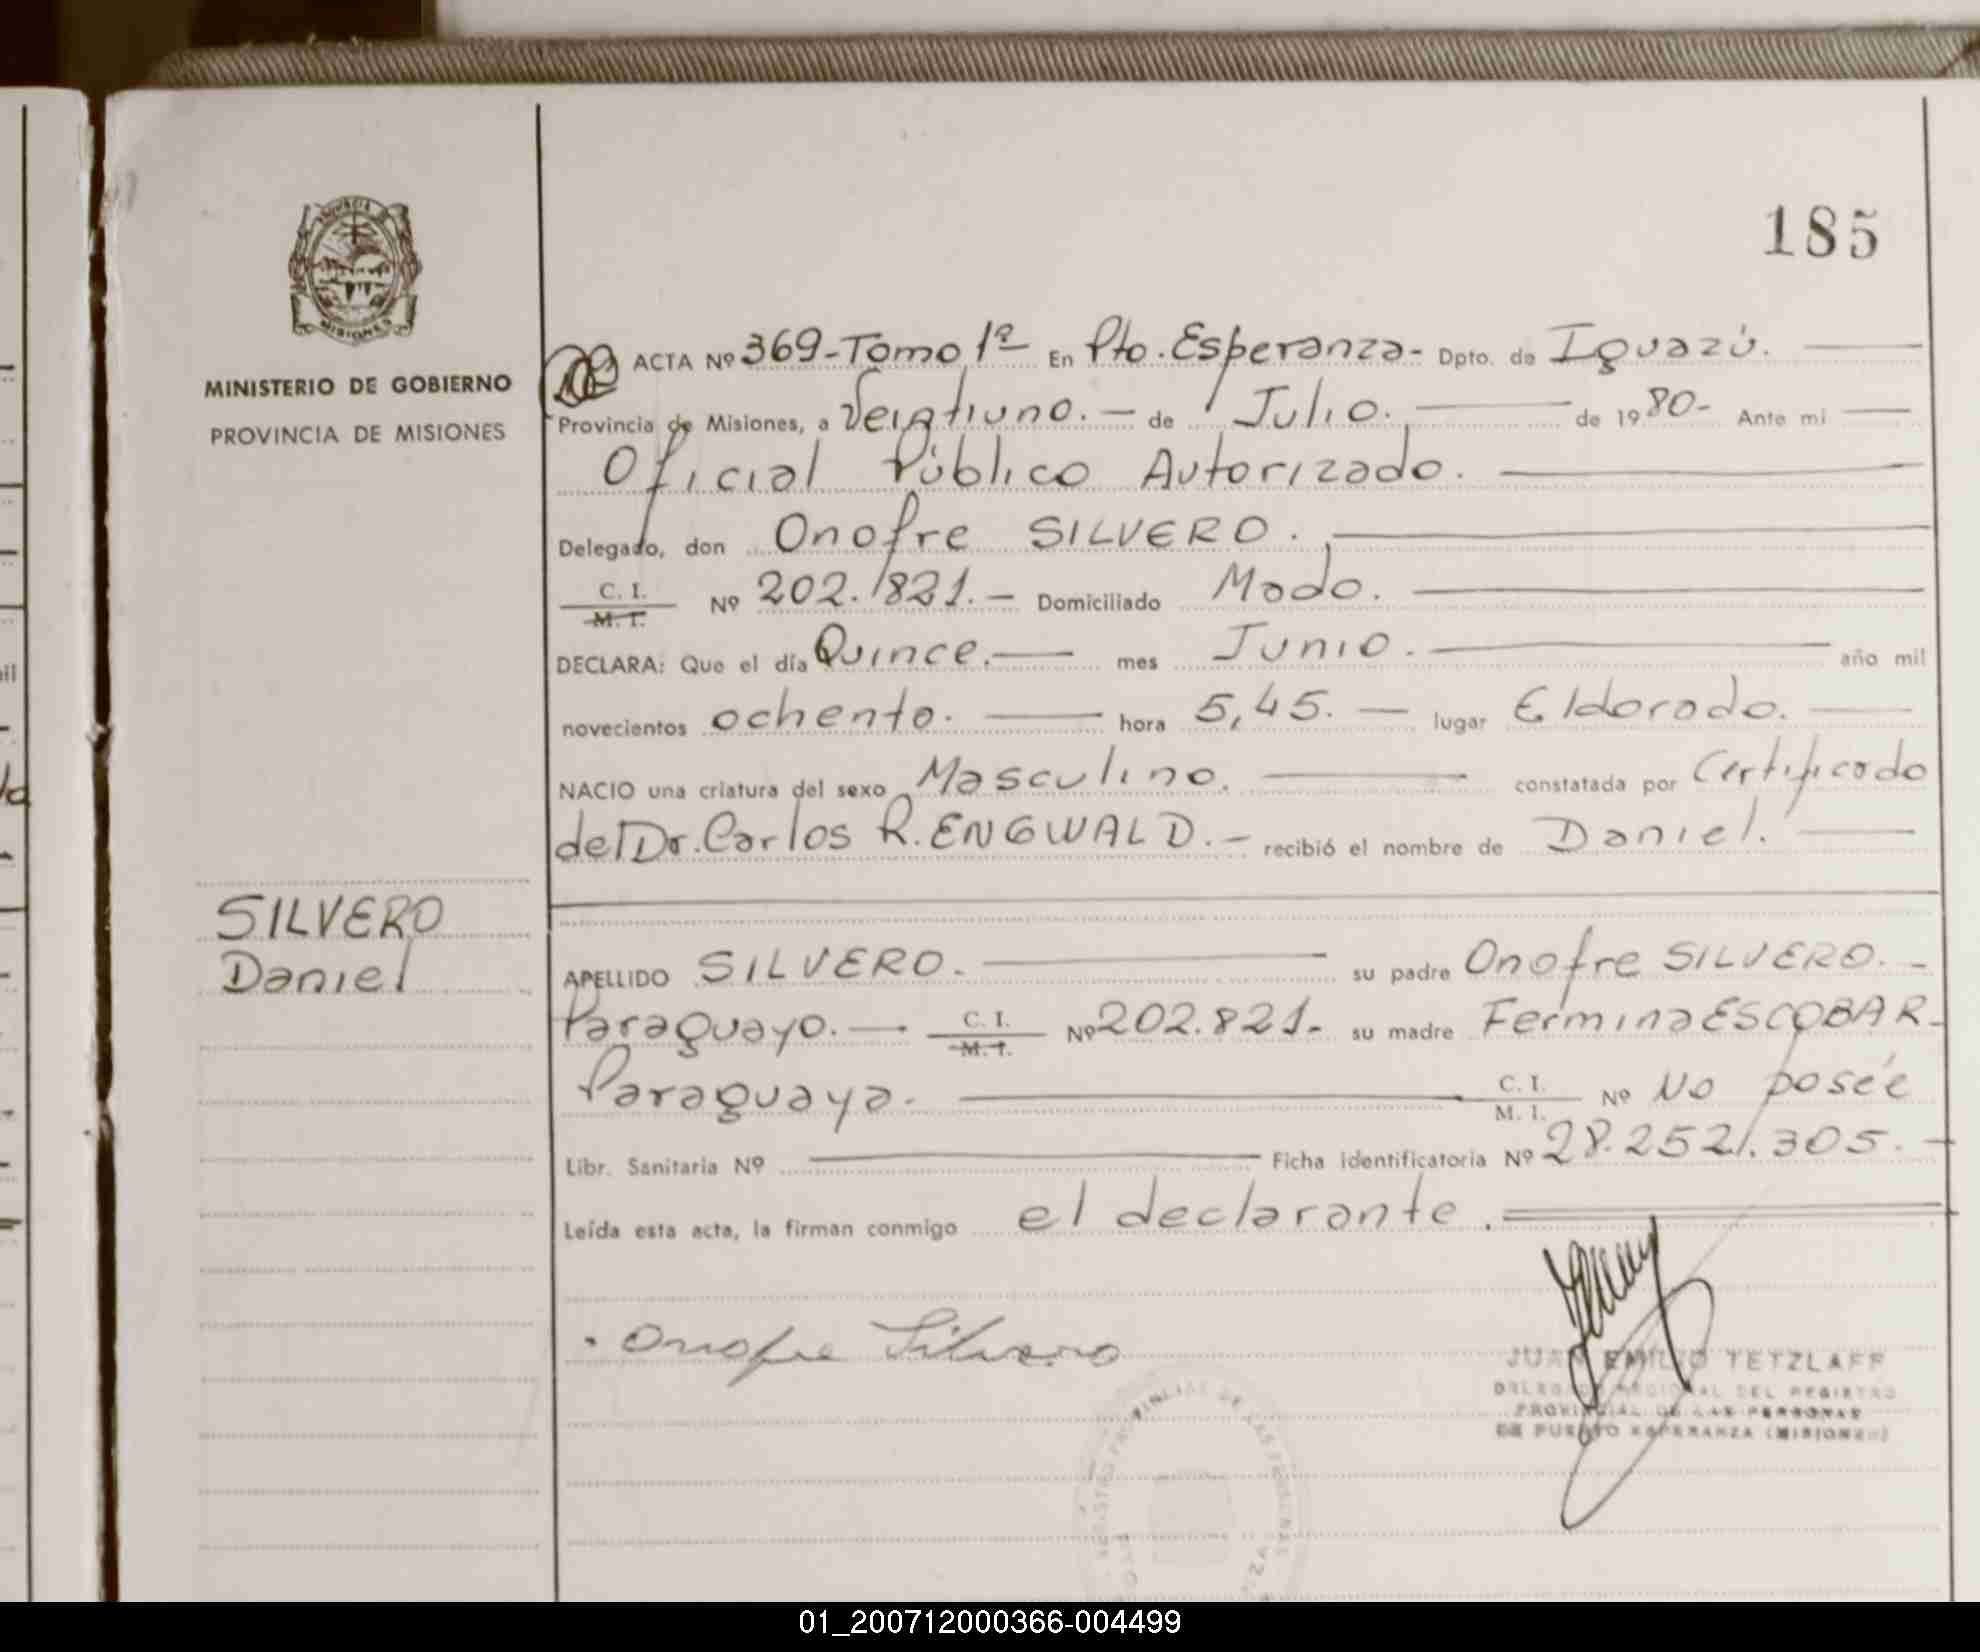 185
MINISTERIO DE GOBIERNO
PROVINCIA DE MISIONES
ACTA Nº 369-Tomo 1º En Pto. Esperanza- Dpto. de Iguazú.
Provincia de Misiones, a Veintiuno.- de Julio. de 1980- Ante mi
Oficial Público Autorizado.
Delegado, don Onofre SILVERO.
C. I.
M. I. Nº 202.821.- Domiciliado Mado.
DECLARA: Que el día Quince. mes Junio. año mil
novecientos ochenta. hora 5,45. lugar Eldorado.
NACIO una criatura del sexo Masculino. constatada por Certificado
del Dr. Carlos R. ENGWALD.- recibió el nombre de Daniel.
SILVERO
Daniel
APELLIDO SILVERO. su padre Onofre SILVERO.-
Paraguayo.- C. I. M. I. Nº 202.821- su madre Fermina ESCOBAR-
Paraguaya. C. I. M. I. Nº No posée
Libr. Sanitaria Nº Ficha identificatoria Nº 28.252.305.-
Leída esta acta, la firman conmigo el declarante.
Onofre Silvero
JUAN EMILIO TETZLAFF
DELEGADO REGIONAL DEL REGISTRO
PROVINCIAL DE LAS PERSONAS
DE PUERTO ESPERANZA (MISIONES)
01_200712000366-004499